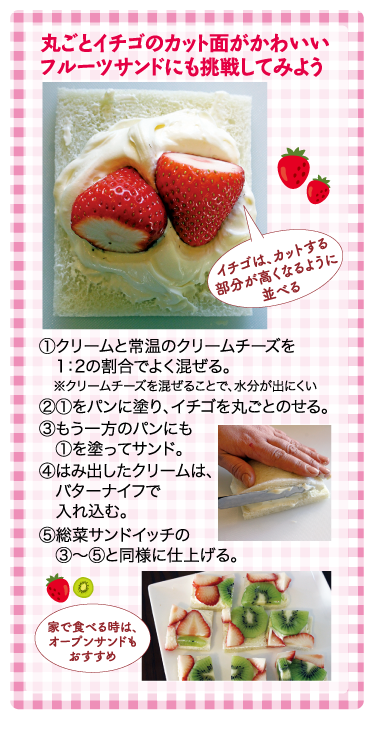 丸ごとイチゴのカット面がかわいい
フルーツサンドにも挑戦してみよう
イチゴは、カットする
部分が高くなるように
並べる
①クリームと常温のクリームチーズを
1:2の割合でよく混ぜる。
※クリームチーズを混ぜることで、水分が出にくい
②①をパンに塗り、イチゴを丸ごとのせる。
③もう一方のパンにも
①を塗ってサンド。
④はみ出したクリームは、
バターナイフで
入れ込む。
⑤総菜サンドイッチの
③〜⑤と同様に仕上げる。
家で食べる時は、
オープンサンドも
おすすめ